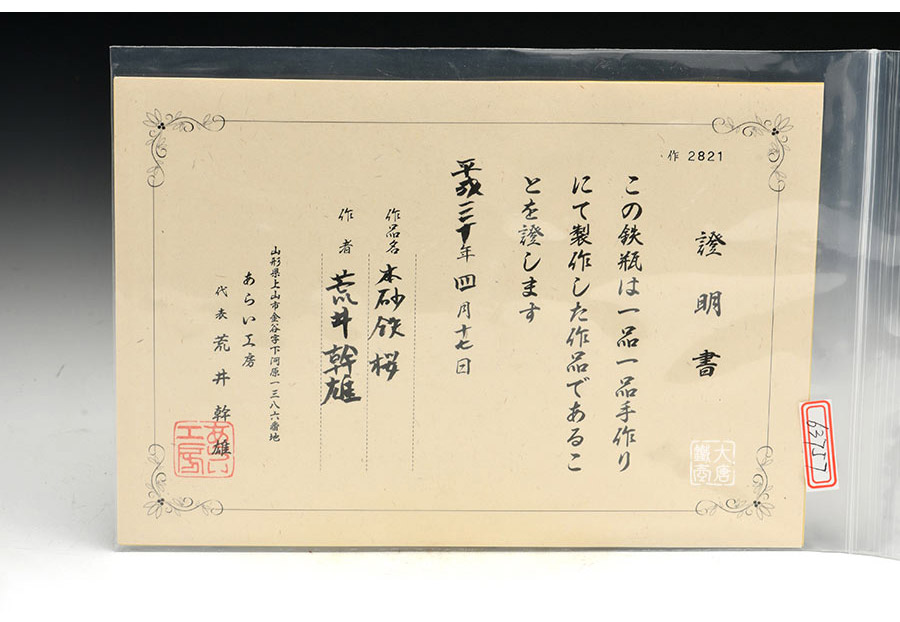 作 2821
證明書
この鉄瓶は一品一品手作り
にて製作した作品であるこ
とを證します
平成三十年四月十七日
作品名 本砂鉄 桜
作者 荒井幹雄
山形県上山市金谷字下河原一三八六番地
あらい工房
代表 荒井幹雄
あらい工房
大唐
63757